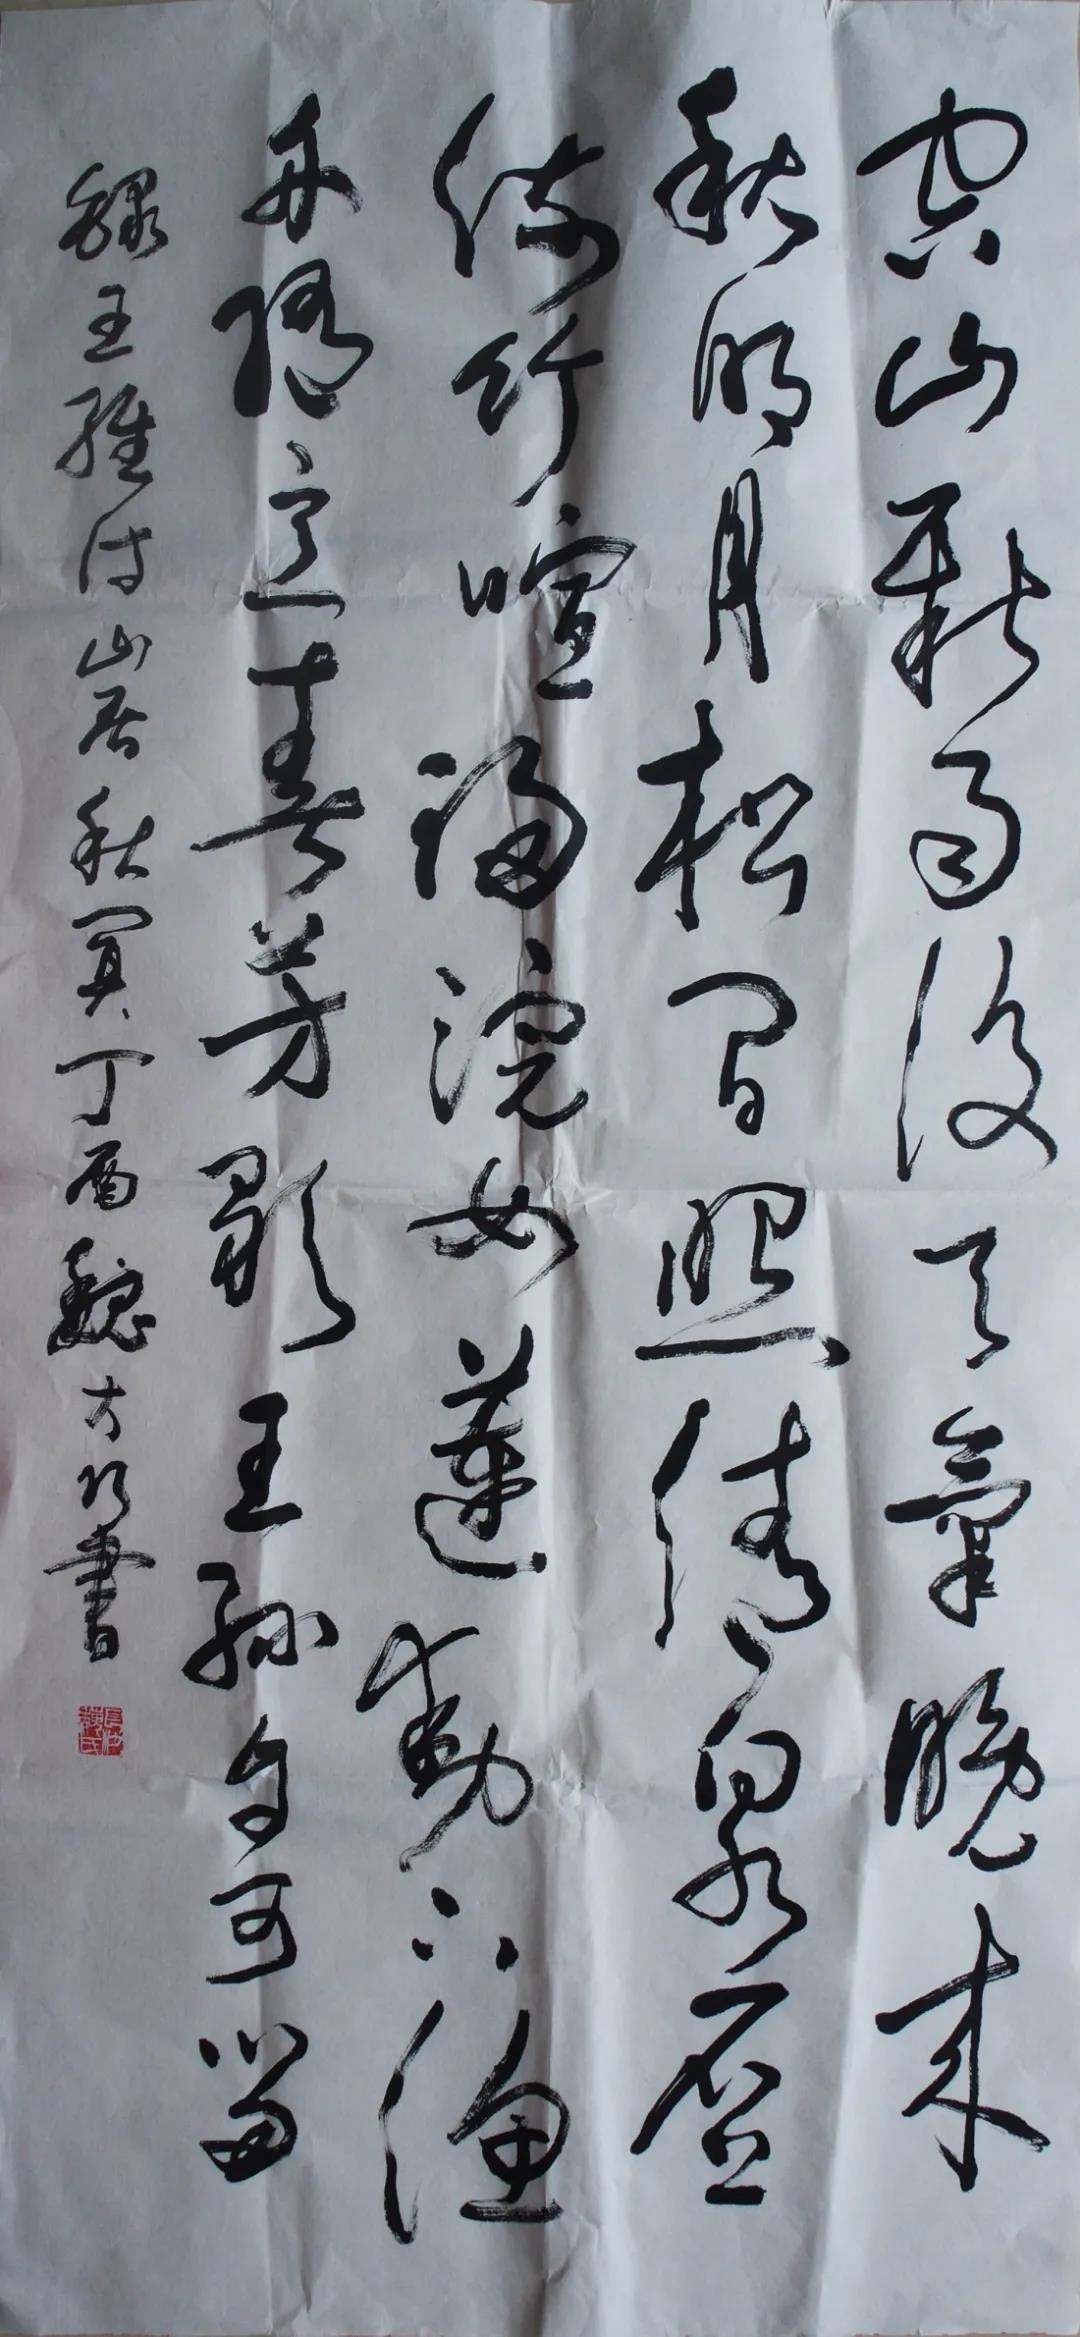 空山新雨後天氣晚来
秋明月松间照清泉石上
流竹喧归浣女蓮動下漁
舟随意春芳歇王孫自可留
録王維诗山居秋冥丁酉魏大书